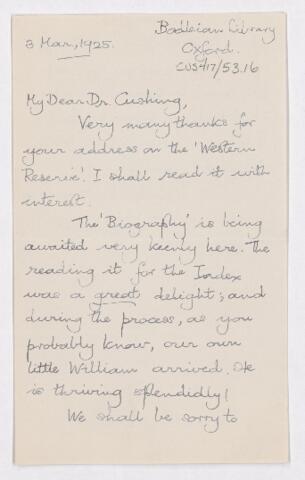 3 Mar, 1925.
Bodleian Library
Oxford.
CUS417/53.16
My Dear Dr. Cushing,
Very many thanks for
your address on the 'Western
Reserve'. I shall read it with
interest.
The 'Biography' is being
awaited very keenly here. The
reading it for the Index
was a great delight; and
during the process, as you
probably know, our own
little William arrived. He
is thriving splendidly!
We shall be sorry to